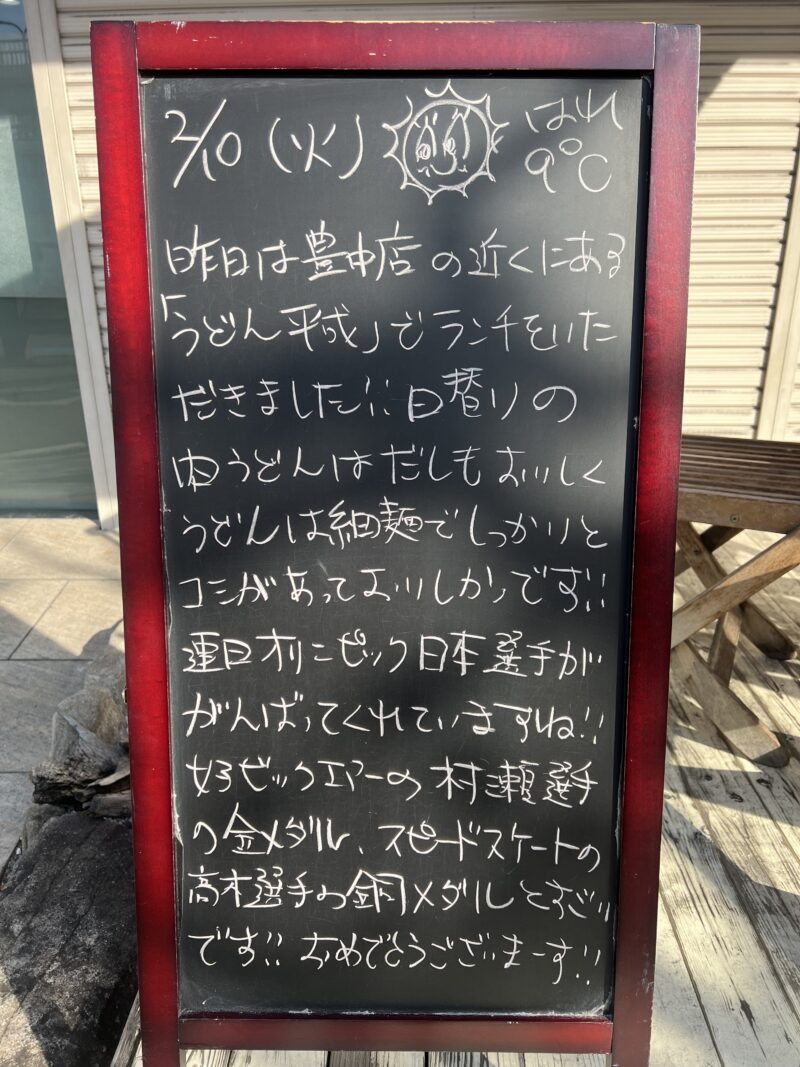 2/10(火) はれ
9℃
昨日は豊中店の近くにある
「うどん平成」でランチをいた
だきました!!日替りの
肉うどんはだしもおいしく
うどんは細麺でしっかりと
コシがあっておいしかったです!!
連日オリンピック日本選手が
がんばってくれていますね!!
女子ビックエアーの村瀬選手
の金メダル、スピードスケートの
高木選手の銅メダルとすごい
です!! おめでとうございまーす!!